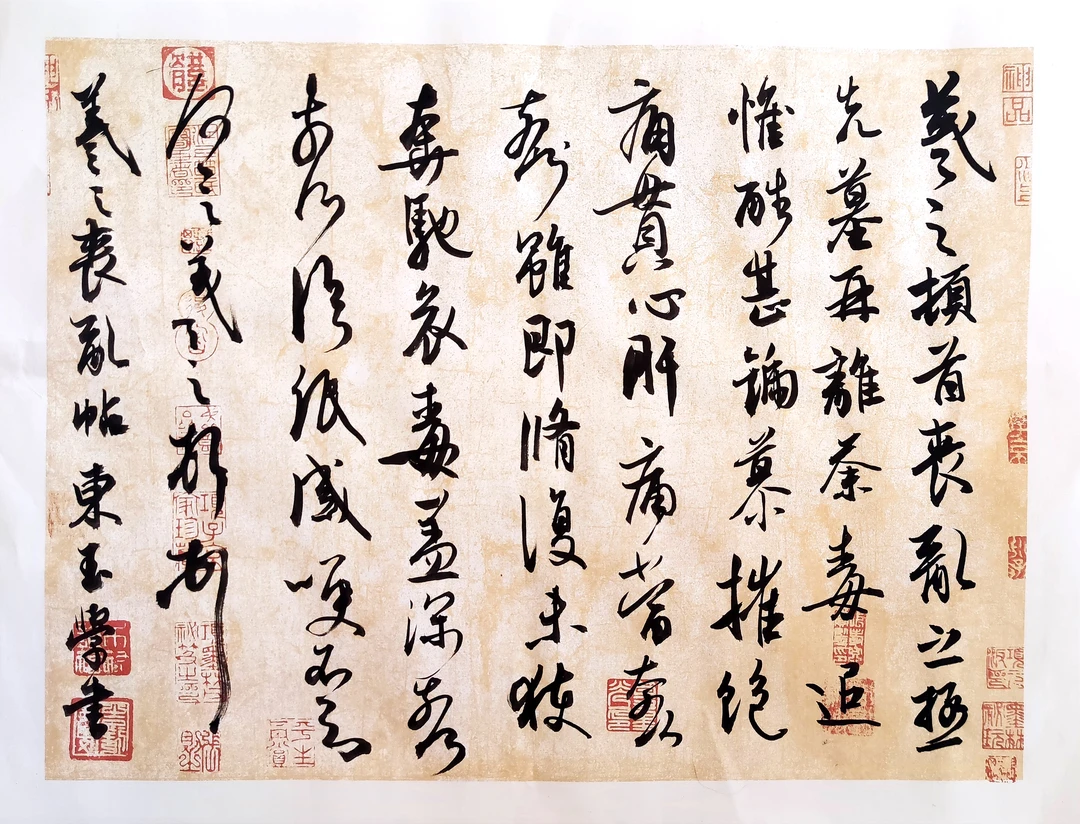 神品
羲之頓首喪亂之極
先墓再離荼毒追
惟酷甚號慕摧絕
痛貫心肝痛當奈何
奈何雖即脩復未獲
奔馳哀毒益深奈何
奈何臨紙感哽不知
何言羲之頓首頓首
羲之喪亂帖 東玉學書